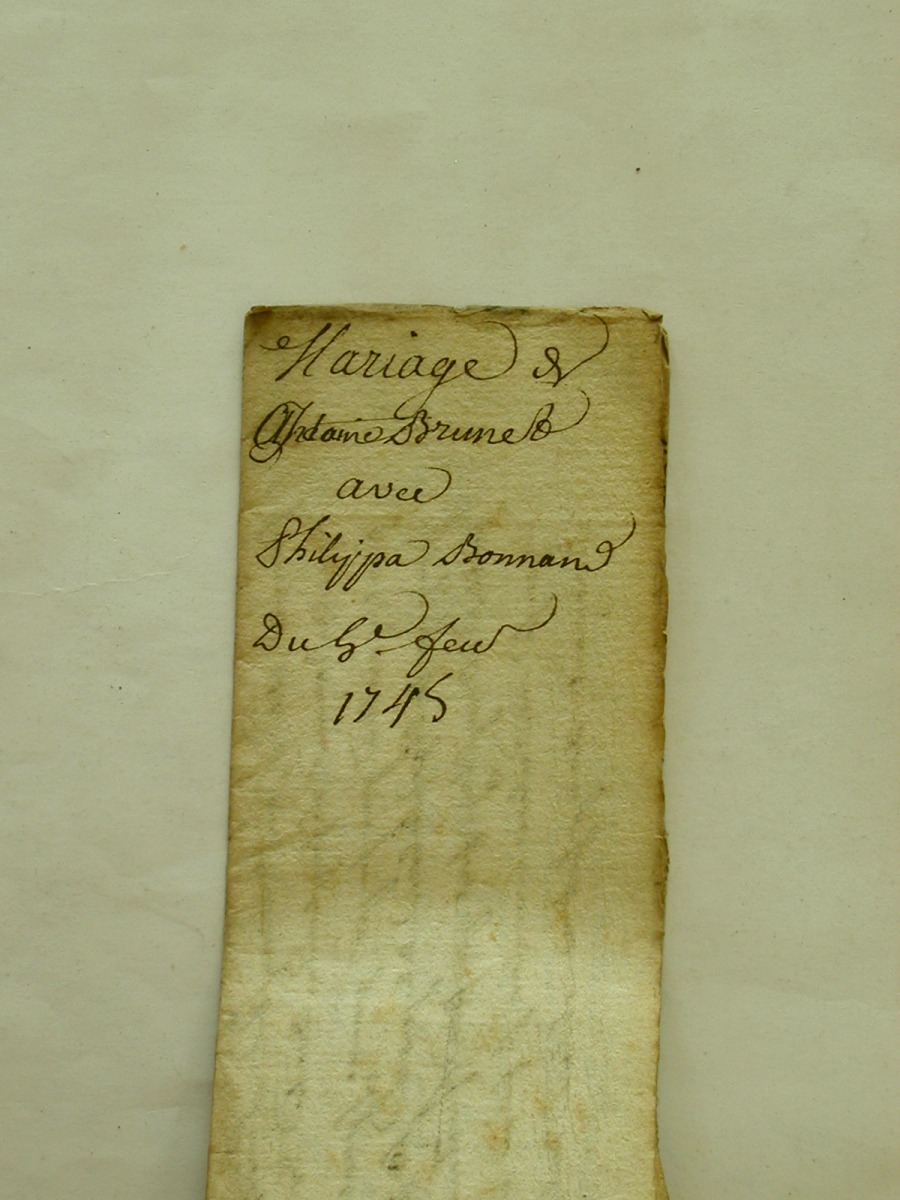 Mariage de
Antoine Brunet
avec
Philippa Bonnand
Du 5e feur
1745